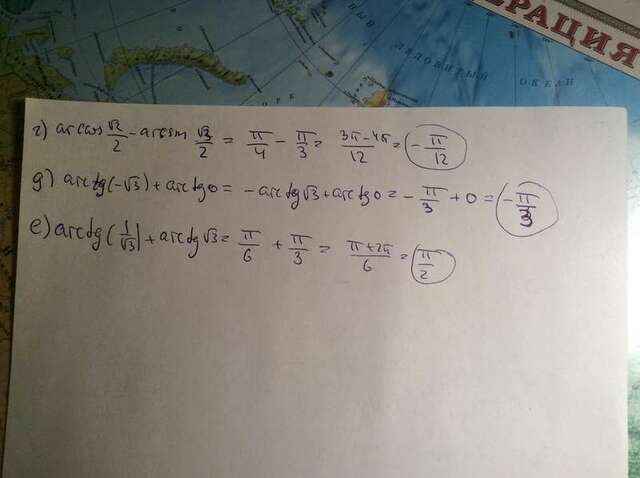 ЕРАЦИЯ
ЛЕДОВИТЫЙ
ОКЕАН
г) arccos √2/2 - arcsin √3/2 = π/4 - π/3 = 3π-4π/12 = -π/12
д) arctg(-√3) + arctg0 = -arctg√3 + arctg0 = -π/3 + 0 = -π/3
е) arctg(1/√3) + arctg√3 = π/6 + π/3 = π+2π/6 = π/2